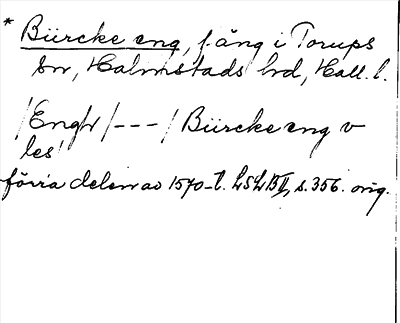 * Bürcke eng, f. äng i Torups
sn, Halmstads hd, Hall. l.
/Engh/---/ Bürcke eng v
les'
förra delen av 1570-t. LSLBII, s. 356. orig.